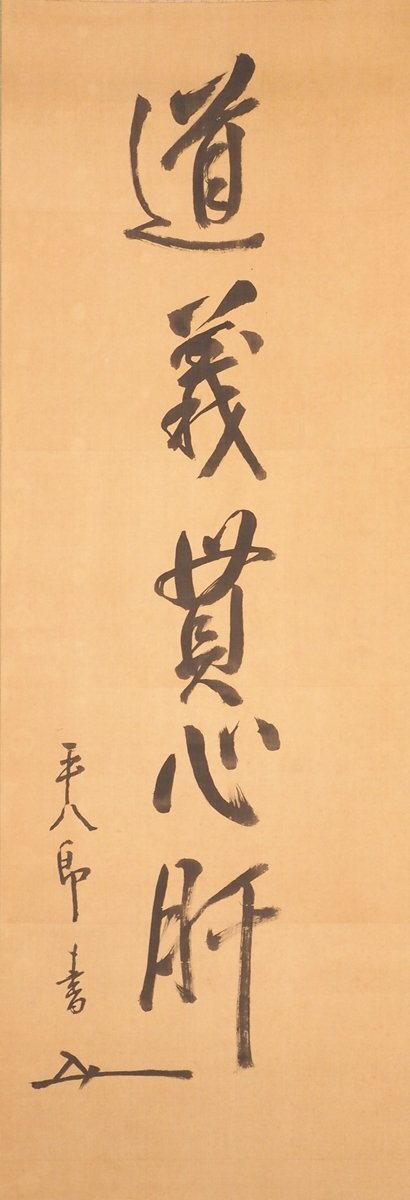 道義貫心肝
平八郎書